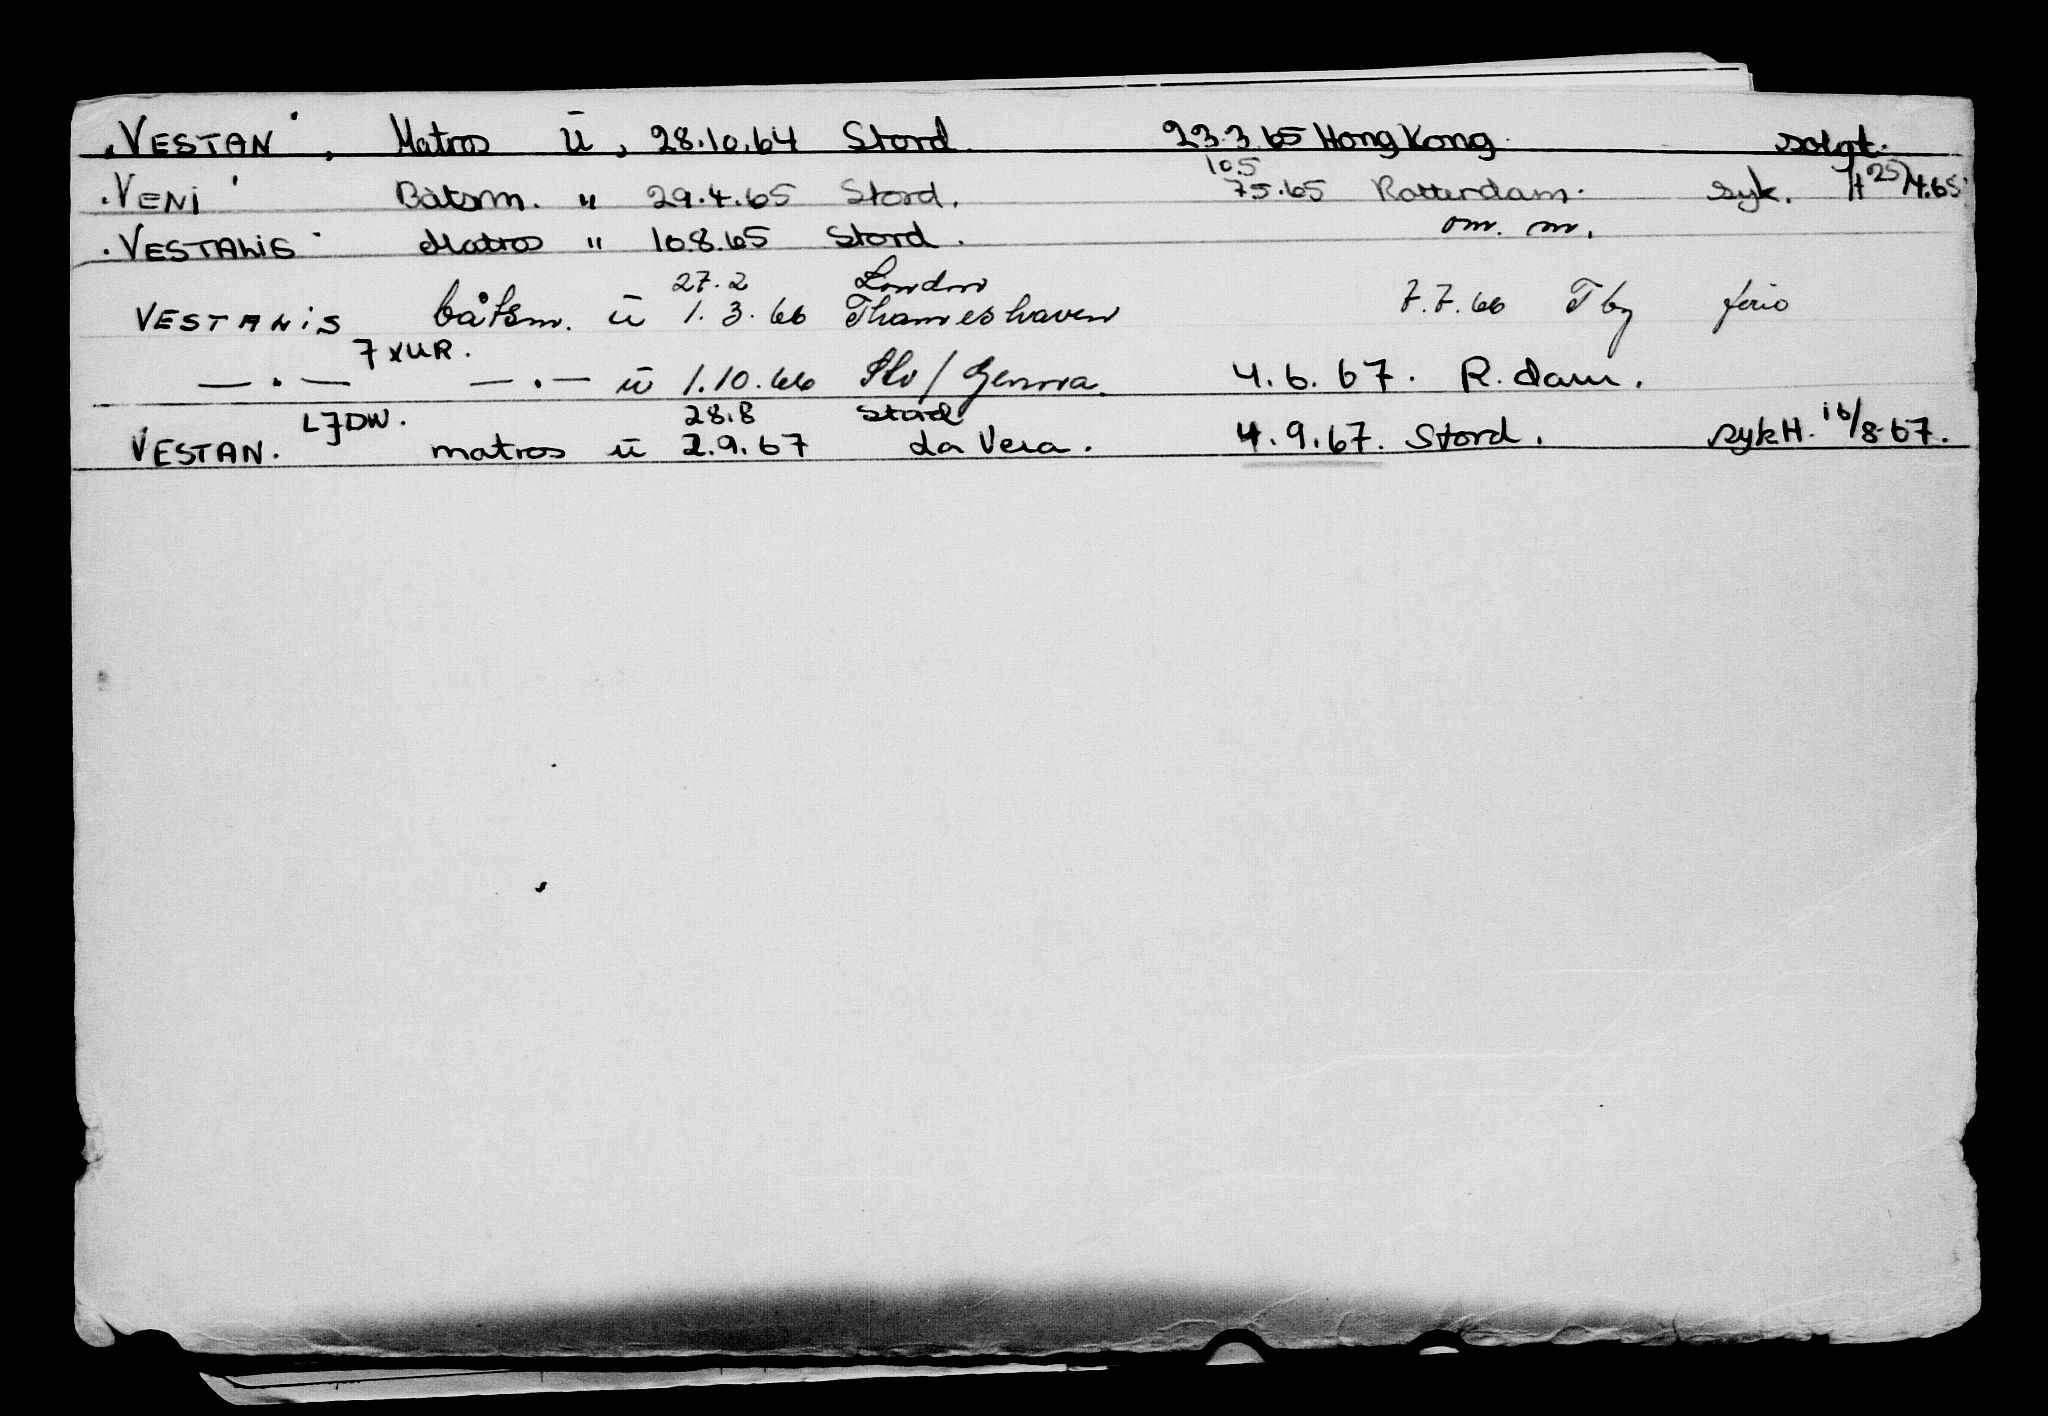 "VESTAN", Matros ū, 28.10.64 Stord. 23.3.65 Hong Kong. solgt.
10.5
"VENI" Båtsm. " 29.4.65 Stord. 7.5.65 Rotterdam. syk. H 25/4.65
"VESTALIS" Matros " 10.8.65 Stord. om. m.
27.2 London
VESTANIS båtsm. ū 1.3.66 Thameshaven 7.7.66 Tby ferie
7 XUR.
— . — — . — ū 1.10.66 Slv / Genova. 4.6.67. R.dam.
LJDW. 28.8 Stord
VESTAN. matros ū 2.9.67 La Vera. 4.9.67. Stord. syk H. 16/8-67.